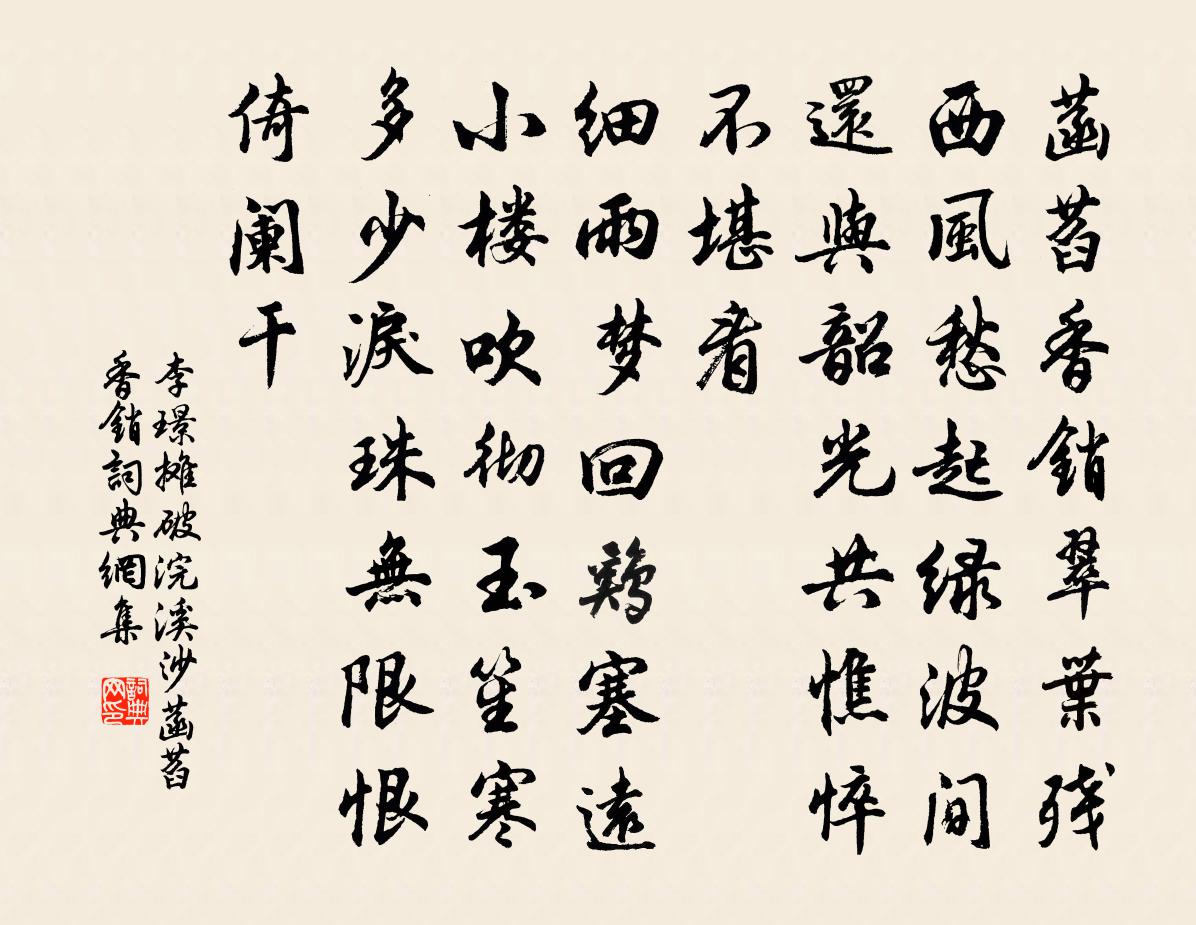 菡萏香銷翠葉残
西風愁起绿波间
還與韶光共憔悴
不堪看
细雨梦回鸡塞遠
小楼吹彻玉笙寒
多少淚珠無限恨
倚阑干
李璟摊破浣溪沙菡萏
香銷詞典網集
詞典網印